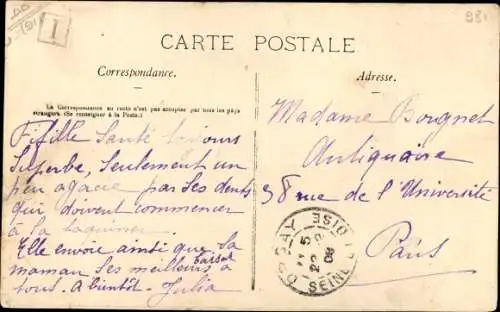 I
981
CARTE POSTALE
Correspondance.
Adresse.
La Correspondance au recto n'est pas acceptée par tous les pays
étrangers. (Se renseigner à la Poste.)
Fifille Santé toujours
Superbe, Seulement un
peu agacée par Ses dents
qui doivent commencer
à la taquiner.
Elle envoie ainsi que Sa
maman Ses meilleurs baisers
à tous. A bientôt. Julia
Madame Bougnet
Antiquaire
58 rue de l'Université
Paris
SEINE
OISE
22
08